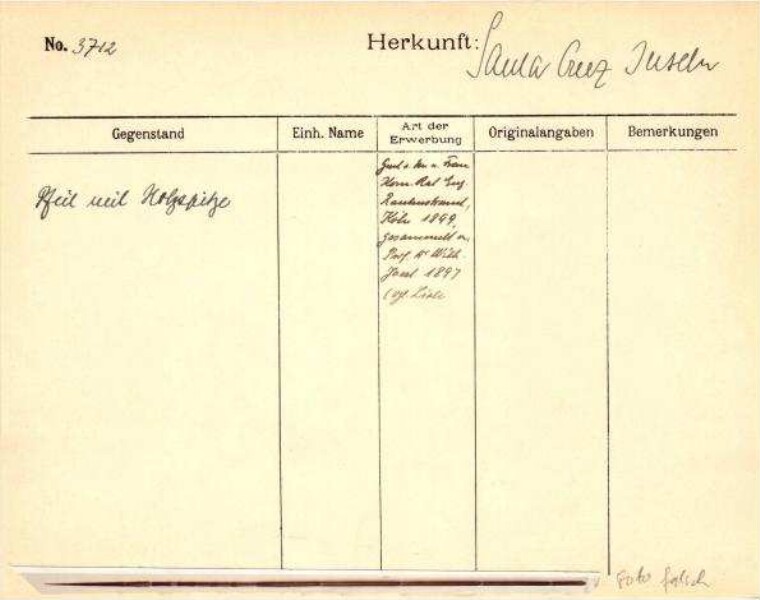 No. 3712
Herkunft: Santa Cruz Inseln
Gegenstand
Einh. Name
Art der
Erwerbung
Originalangaben
Bemerkungen
Pfeil mit Holzspitze
Frau
Kom. Rat Eug.
Rautenstrauch,
Köln 1899,
gesammelt v.
Prof. Dr Wilh.
Joest 1897
(vgl. Liste
Foto falsch